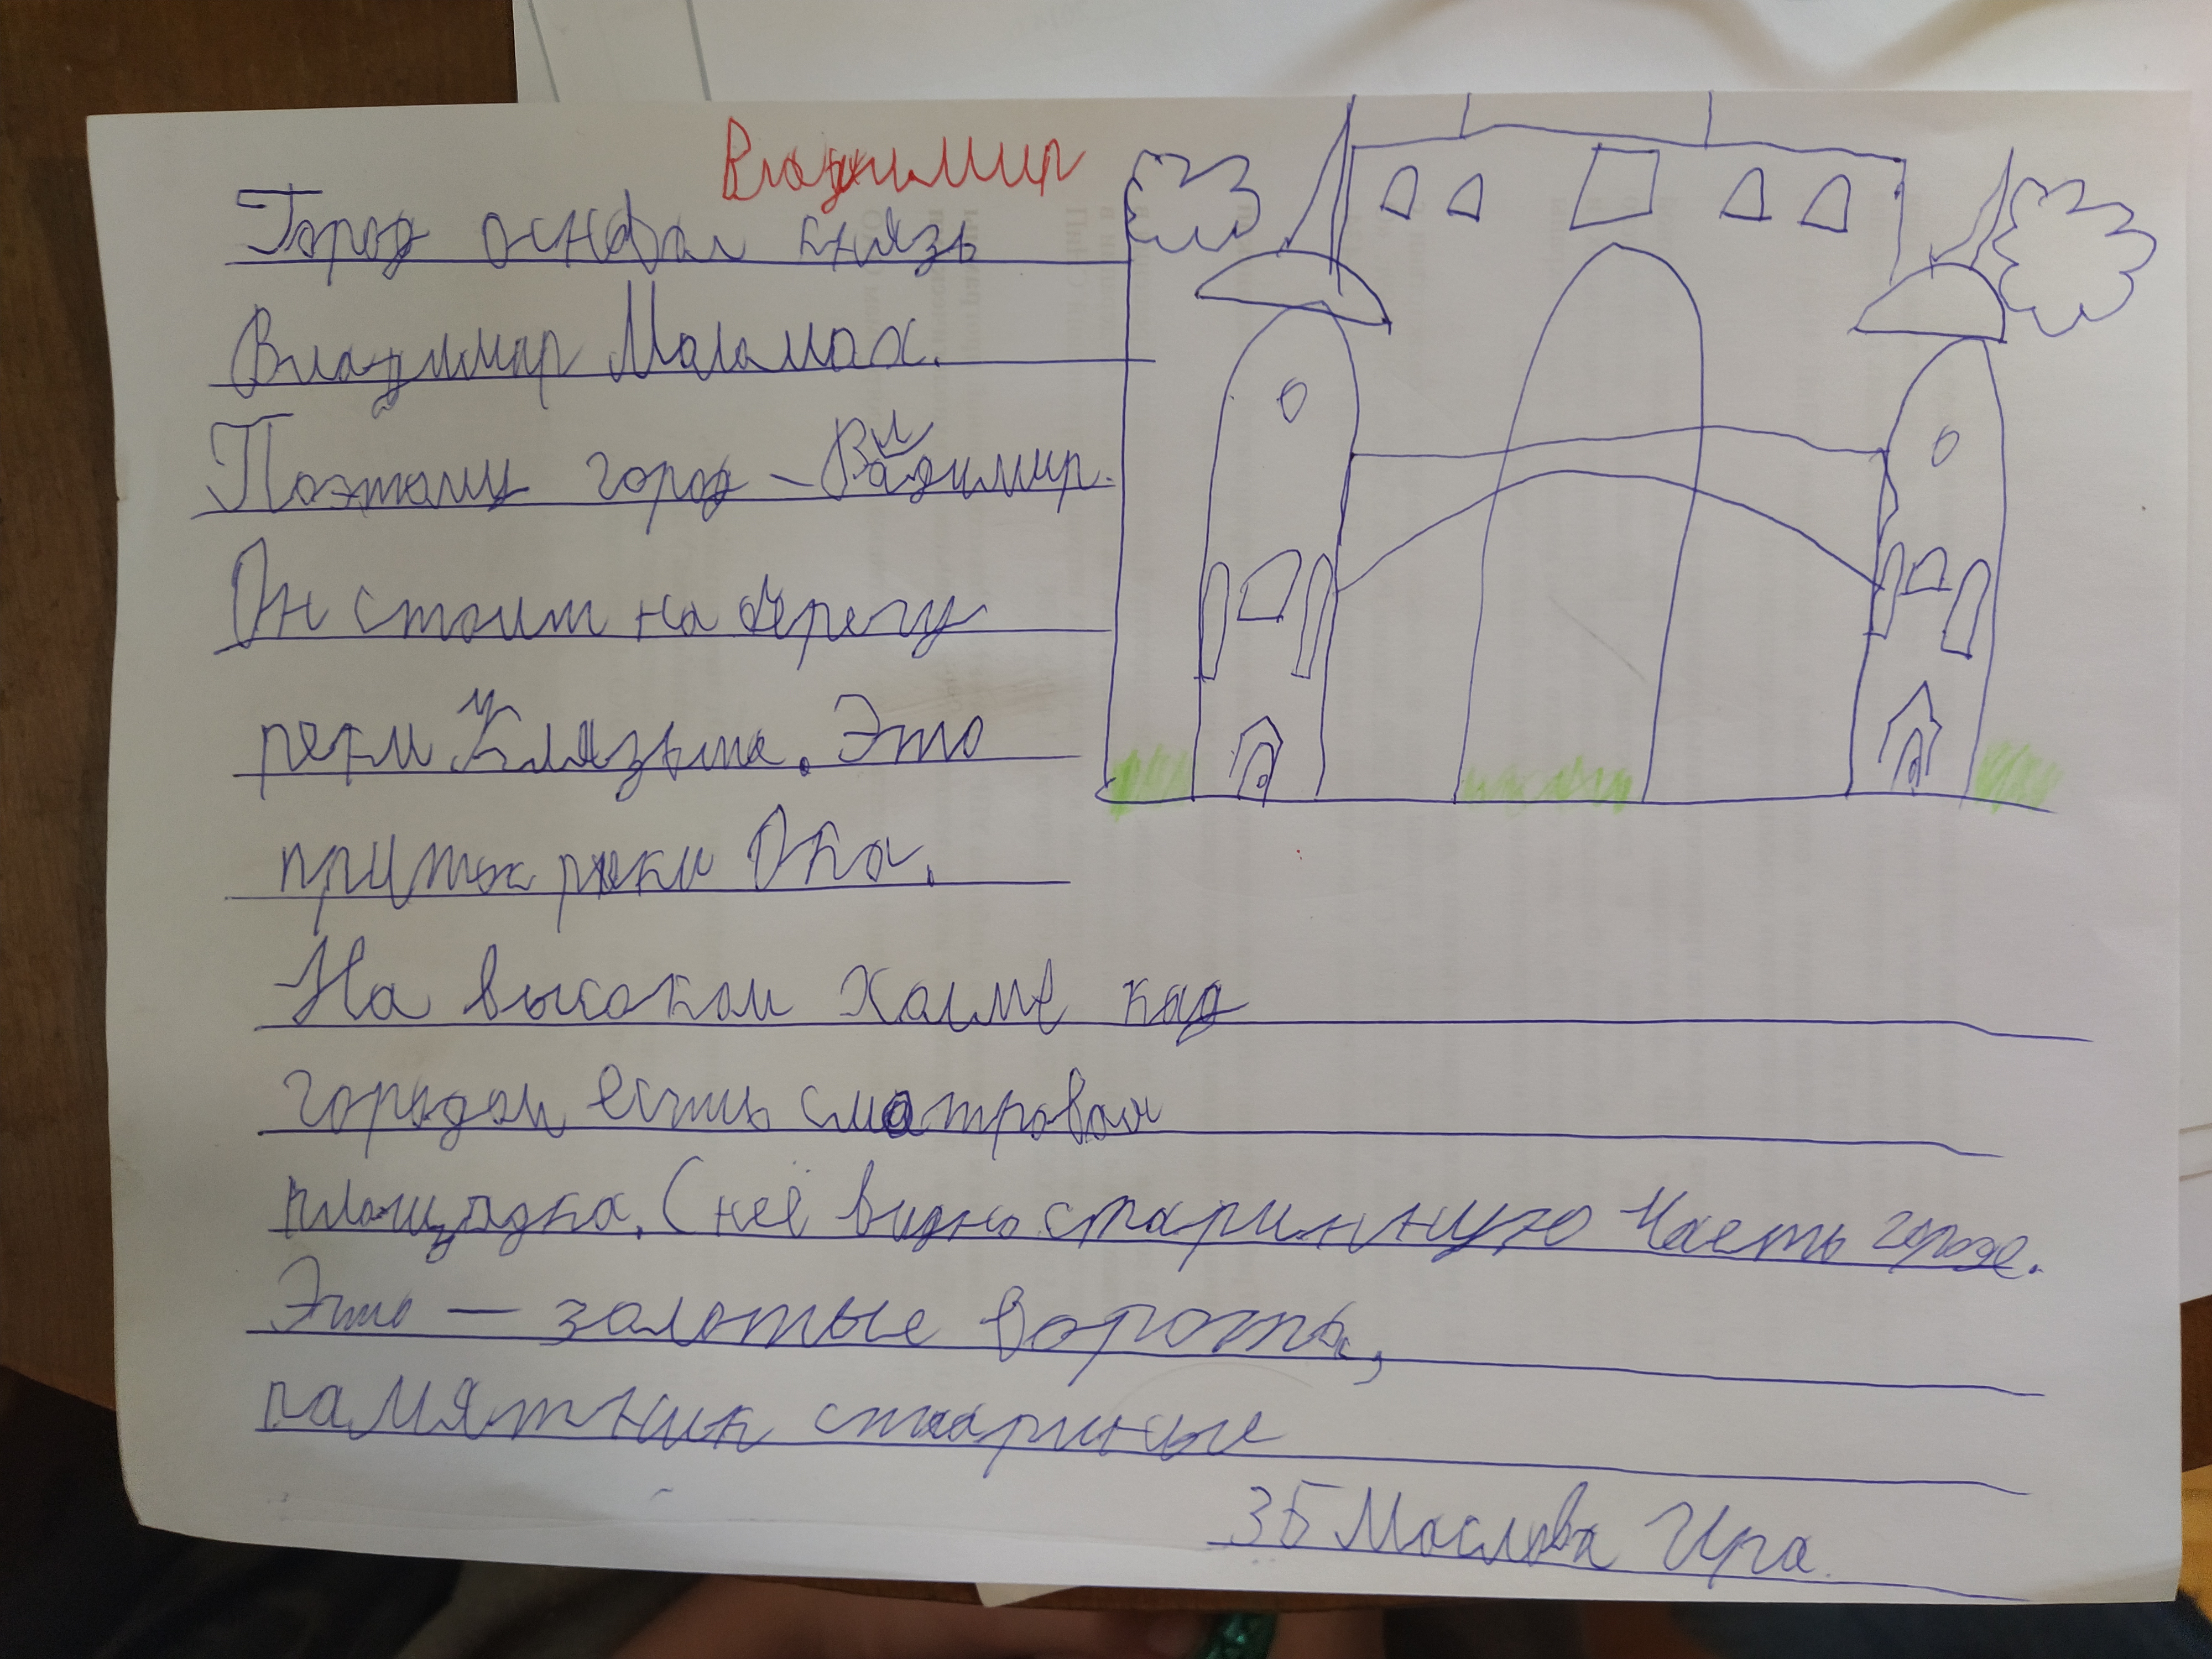 Владимир
Город основал князь
Владимир Маламах.
Поэтому город – Владимир.
Он стоит на берегу
реки Клязьма. Это
приток реки Ока.
На высоком холме над
городом есть смотровая
площадка. С неё видно старинную часть города.
Это — золотые ворота,
памятник старины
3Б Маслова Ира.